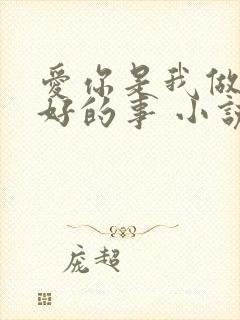 愛你是我做
好的事 小説
庞超